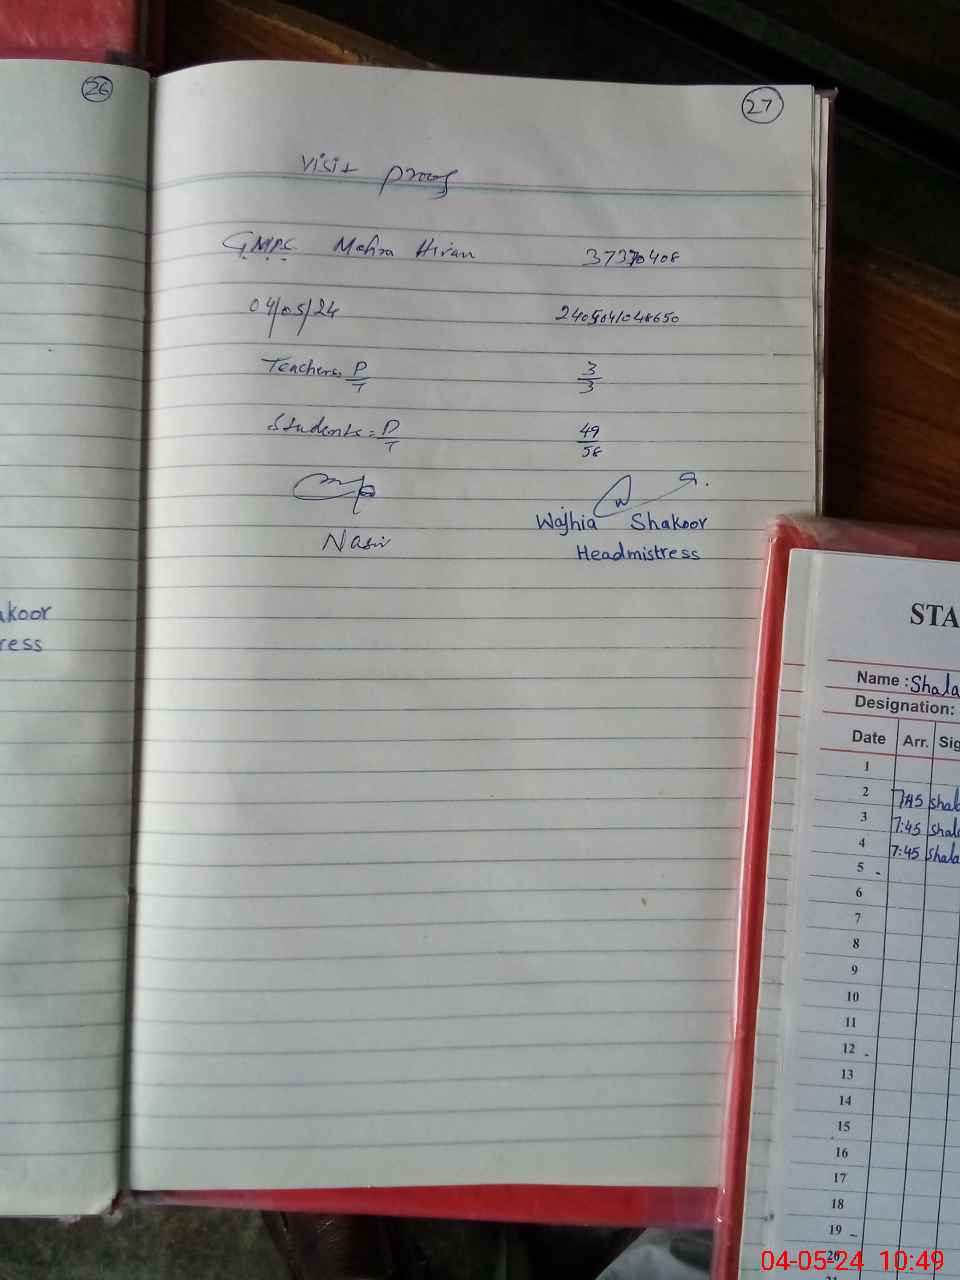 26
akoor
ress
27
Visit Proof
G.M.P.S. Mehra Hiran 37370408
04/05/24 2405041048650
Teachers P/T 3/3
Students = P/T 49/58
Nasir
Wajhia Shakoor
Headmistress
STA
Name : Shala
Designation:
Date Arr. Sig
1
2 7:45 shal
3 7:45 shal
4 7:45 shala
5
6
7
8
9
10
11
12
13
14
15
16
17
18
19
20
21
04-05-24 10:49